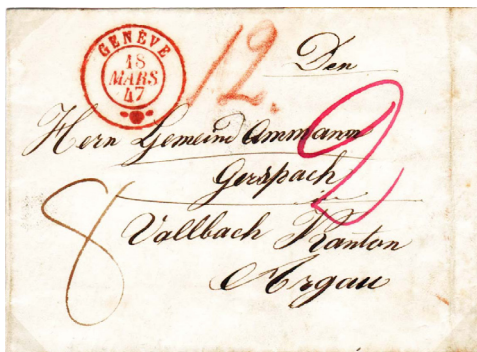 GENÈVE
18
MARS
47
12.
Den
Hern Gemeind Ammann
Gerspach
in
Vallbach Kanton
Argau
8
2